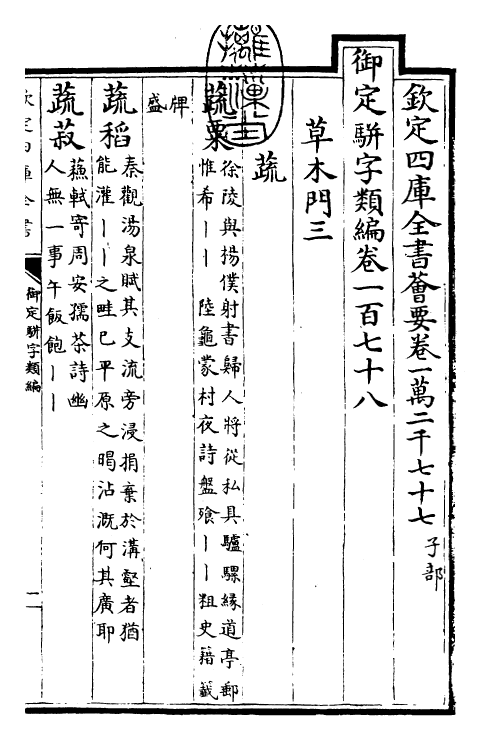 欽定四庫全書薈要卷一萬二千七十七 子部
御定駢字類編卷一百七十八
草木門三
蔬
蔬粟 徐陵與揚僕射書歸人將從私具驢騾緣道亭郵
惟希丨丨 陸龜蒙村夜詩盤飱丨丨粗史籍籖
牌
盛
蔬稻 秦觀湯泉賦其支流旁浸捐棄於溝壑者猶
能灌丨丨之畦已平原之暍沾溉何其廣耶
蔬菽 蘇軾寄周安孺茶詩幽
人無一事午飯飽丨丨
欽定四庫全書
御定駢字類編